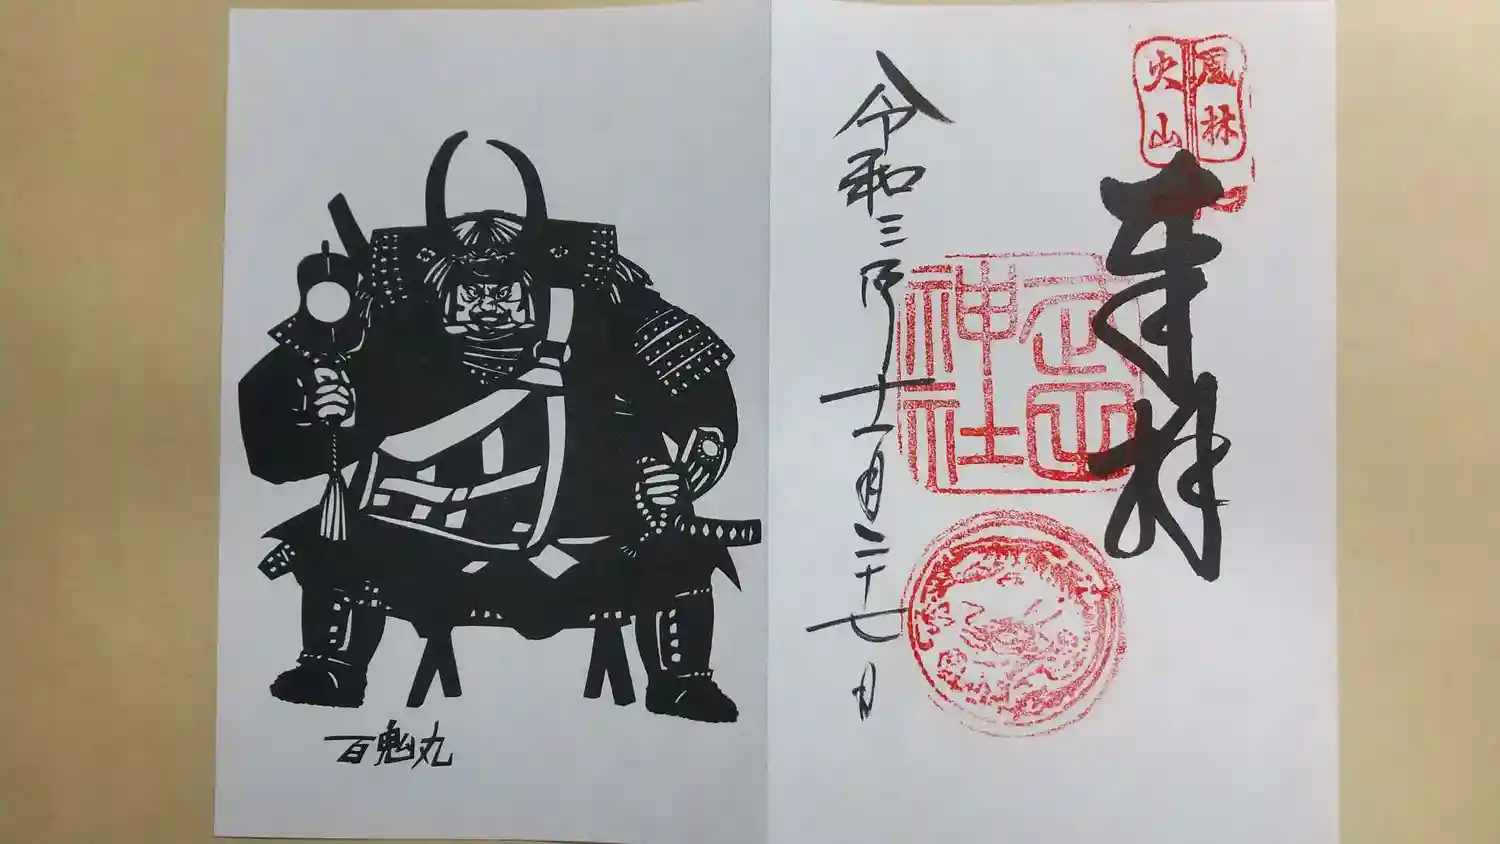 風林
火山
奉拝
武田
神社
令和三年十一月二十七日
百鬼丸